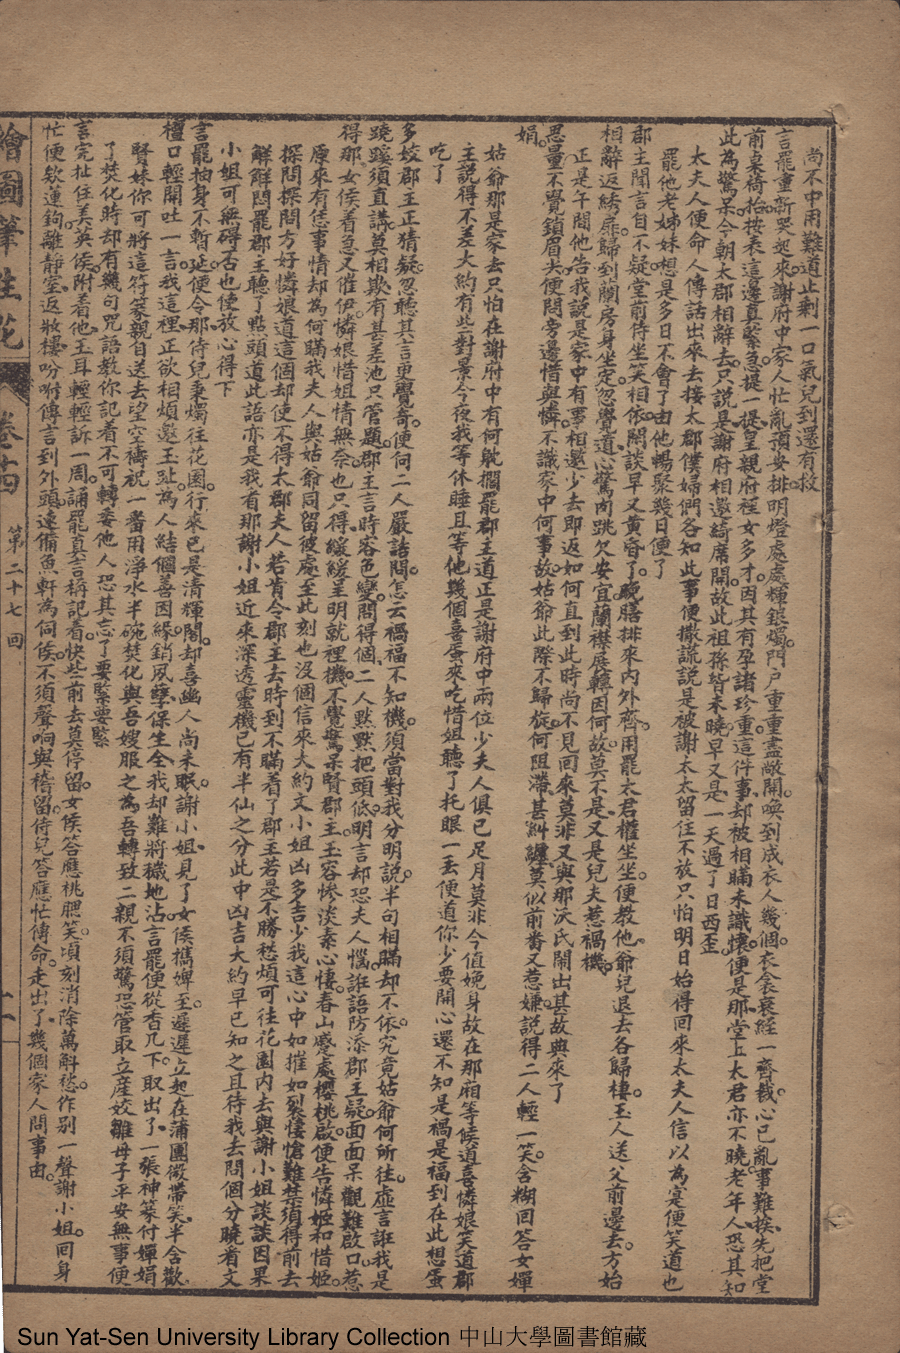 尚不中用難道止剩一口氣兒到還有救
言罷重新哭起來謝府中家人忙亂預安排明燈處處輝銀燭門户重重盡敞開喚到成衣人幾個衣衾衰絰一齊裁心已亂事難挨先把堂
前桌椅抬按表這邊真緊急提一提皇親府裡女多才因其有孕諸珍重這件事却被相瞞未識懷便是那堂上太君亦不曉老年人恐其知
此為驚呆今朝太郡相辭去只說是謝府相邀綺席開故此祖孫皆未曉早又是一天過了日西歪
太夫人便命人傳話出來去接太郡僕婦們各知此事便撒謊說是被謝太太留住不放只怕明日始得回來太夫人信以為寔便笑道也
罷他老姊妹想是多日不會了由他暢聚幾日便了
郡主聞言自不疑堂前侍坐笑相依閒談早又黃昏了晚膳排來內外齊用罷太君權坐坐便教他爺兒退去各歸棲玉人送父前邊去方始
相辭返綉扉歸到蘭房身坐定忽覺道心驚肉跳欠安宜蘭襟展轉因何故莫不是又是兒夫惹禍機
正是午間他告我說是家中有事相邀少去即返如何直到此時尚不見回來莫非又與那沃氏鬧出甚故典來了
思量不覺鎖眉尖便問旁邊惜與憐不識家中何事故姑爺此際不歸旋何阻滯甚糾纏莫似前番又惹嫌說得二人輕一笑含糊回答女嬋
娟
姑爺那是家去只怕在謝府中有何躭擱罷郡主道正是謝府中兩位少夫人俱已足月莫非今值娩身故在那廂等候道喜憐娘笑道郡
主說得不差大約有些對景今夜我等休睡且等他幾個喜蛋來吃惜姐聽了托眼一丢便道你少要開心還不知是禍是福到在此想蛋
吃了
多姣郡主正猜疑忽聽其言更覺奇便向二人嚴詰問怎云禍福不知機須當對我分明說半句相瞞却不依究竟姑爺何所往虛言誑我是
蹺蹊須直講莫相欺有甚差池只管題郡主言時容色變閣得個二人默默把頭低明言却恐夫人惱誑語防添郡主疑面面呆觀難啟口惹
得那女侯着急又催伊憐娘惜姐情無奈也只得緩緩呈明就裡機不覺驚呆賢郡主玉容慘淡素心悽春山蹙處櫻桃啟便告憐姬和惜姬
原來有恁事情却為何瞞我夫人與姑爺同留彼處至此刻也沒個信來大約文小姐凶多吉少我這心中如摧如裂悽愴難禁須得前去
探問探問方好憐娘道這個却使不得太郡夫人若肯令郡主去時到不瞞着了郡主若是不勝愁煩可往花園內去與謝小姐談談因果
解解悶罷郡主聽了點頭道此語亦是我看那謝小姐近來深透靈機已有半仙之分此中凶吉大約早已知之且待我去問個分曉看文
小姐可無碍否也使放心得下
言罷抽身不暫延便令那侍兒秉燭往花園行來已是清輝閣却喜幽人尚未眠謝小姐見了女侯擕婢至遲遲立起在蒲團微帶笑半含歡
檀口輕開吐一言我這裡正欲相煩邀玉趾為人結個善因緣銷夙孽保生全我却難將穢地沾言罷便從香几下取出了一張神篆付嬋娟
賢妹你可將這符篆親自送去望空禱祝一番用淨水半碗焚化與吾嫂服之為吾轉致二親不須驚恐管取立產姣雛母子平安無事便
了焚化時却有幾句咒語教你記着不可轉委他人恐其忘了要緊要緊
言完扯住美英侯附着他玉耳輕輕訴一周誦罷真言稱記着快些前去莫停留女侯答應桃腮笑頃刻消除萬斛愁作别一聲謝小姐回身
忙便欵蓮鉤離靜室返妝樓吩咐傳言到外頭速備魚軒為伺候不須聲响與稽留侍兒答應忙傳命走出了幾個家人問事由
繪圖筆生花 卷十四 第二十七回 十一
Sun Yat-Sen University Library Collection 中山大學圖書館藏